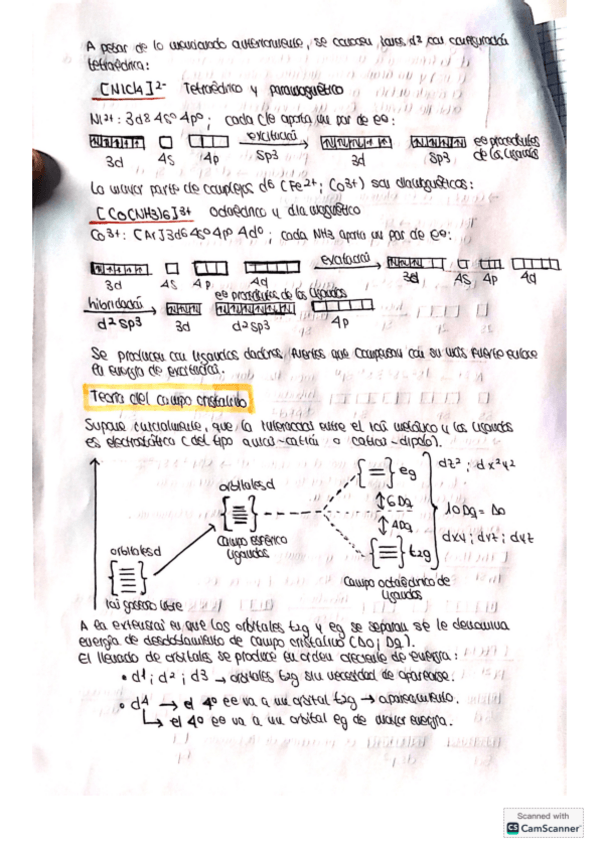 A pesar de lo mencionado anteriormente, se conocen iones d8 con configuración
tetraédrica:
[NiCl4]2- Tetraédrico y paramagnético
Ni2+: 3d8 4s0 4p0; cada Cl- aporta un par de e-:
excitación
sp3
e- procedentes
de los ligandos
3d 4s 4p 3d sp3
La mayor parte de complejos d6 (Fe2+; Co3+) son diamagnéticos:
[Co(NH3)6]3+ Octaédrico y diamagnético
Co3+: [Ar]3d6 4s0 4p0 4d0; cada NH3 aporta un par de e-:
excitación
3d 4s 4p 4d 3d 4s 4p 4d
hibridación e- procedentes de los ligandos
d2sp3 3d d2sp3 4p
Se producen con ligandos dadores fuertes que compensan con su más fuerte enlace
la energía de excitación.
Teoría del campo cristalino
Supone inicialmente, que la interacción entre el ion metálico y los ligandos
es electrostática (del tipo anión-catión o catión-dipolo).
eg dz2; dx2y2
orbitales d
6Dq
10Dq = Δo
4Dq
dxy; dxz; dyz
campo esférico
ligandos
t2g
orbitales d
campo octaédrico de
ligandos
ion gaseoso libre
A la extensión en que los orbitales t2g y eg se separan se le denomina
energía de desdoblamiento de campo cristalino (Δo; Dq).
El llenado de orbitales se produce en orden creciente de energía:
• d1; d2; d3 → orbitales t2g sin necesidad de aparearse.
• d4 → el 4º e- va a un orbital t2g → apareamiento.
↳ el 4º e- va a un orbital eg de mayor energía.
Scanned with
CS CamScanner